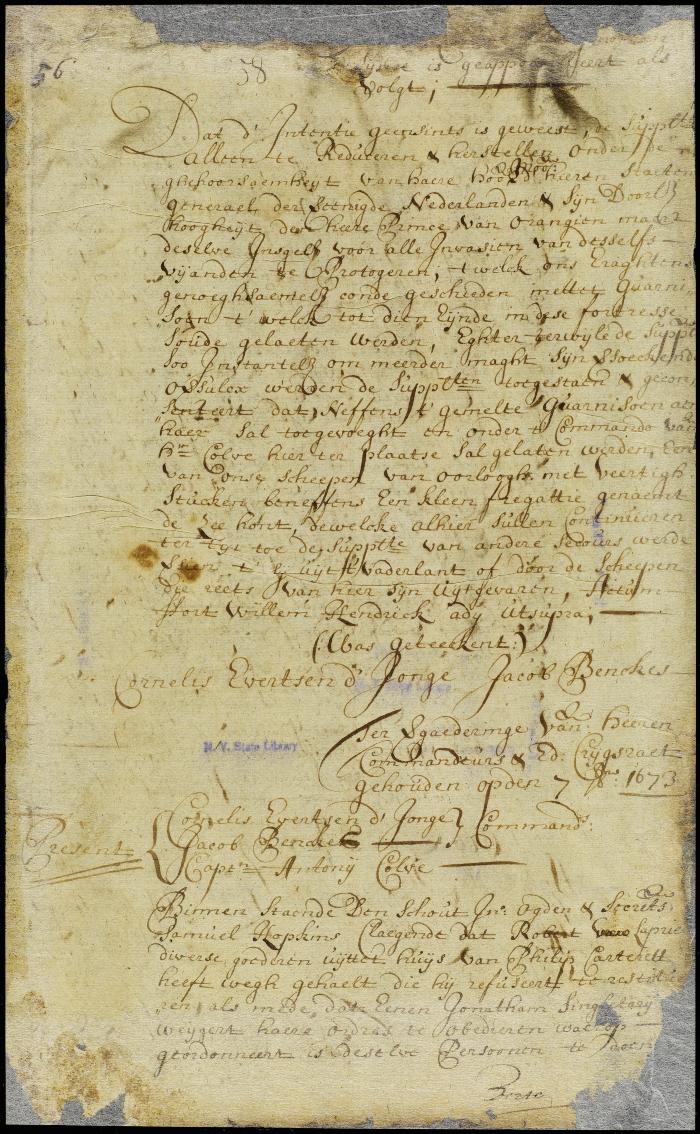 56
58
is geappoincteert als
volgt;
Dat d' Intentie geensints is geweest, de Supplten
allten te Reduceren & herstellen onder de
ghehoorsaemheyt van haere hoog: Mo: heeren Staeten
generael der Vereenigde Nederlanden & Sijn Doorl:
hoogheyt de heere Prince van Orangien maer
deselve Insgelx voor alle Invasien van desselfs
vijanden te Protegeren, t welck ons Eraghtens
genoeghsaemelx conde geschieden mettet Guarni
soen t' welck tot dien Eynde in dese fortresse
soude gelaeten werden, Eghter terwyle de Supplten
soo Instantelx om meerder maght Sijn versoeckende
werden de Supplten toegestaen & gecon
senteert dat, Neffens t' gemelte Guarnisoen
haer Sal toegevoeght en onder t Commando van
hr Colve hier ter plaatse Sal gelaten werden, Een
van onse Scheepen van oorlogh met veertigh
Stucken beneffens Een kleen fregattie genaemt
de Zee hont, dewelcke alhier Sullen Continueren
ter tyt toe de Supplte van andere Secours werde
Sien t' Sy uyt t vaderlant of door de Scheepen
die reets van hier Syn uytgevaren, Actum
ffort Willem Hendrick ady utsupra;
(:Was geteekent:)
Cornelis Evertsen d' Jonge Jacob Benckes
Ter Vergaederinge van heeren
Commandeurs & Ed: Crygsraet
gehouden op den 7 1673
N. Y. State Library
Present
Cornelis Evertsen d' Jonge
Jacob Benckes
Command:
Captn Antony Colve
Binnen Staende Den Schout Jn: Ogden & Secrets:
Samuel Hopkins Claegende dat Robert
diverse goederen uyttet huijs van Philip Carterett
heeft wegh gehaelt die hij refuseert te restitue
ren, als mede, dat Eenen Jonathan Singletary
weygert haere ordres te obedieren waerop
geordonneert is deselve Persoonen te doen